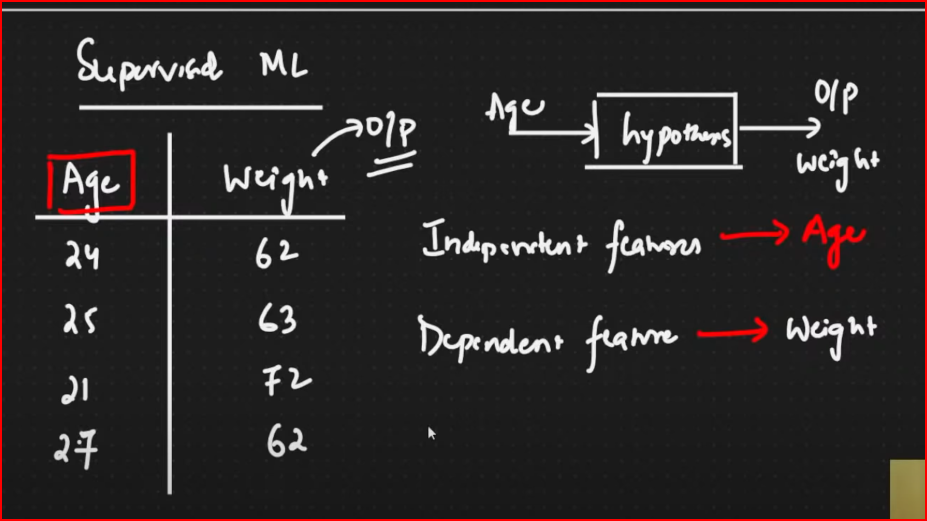 Supervised ML
O/P
Age Weight
24 62
25 63
21 72
27 62
Age hypothesis O/P
Weight
Independent features Age
Dependent feature Weight